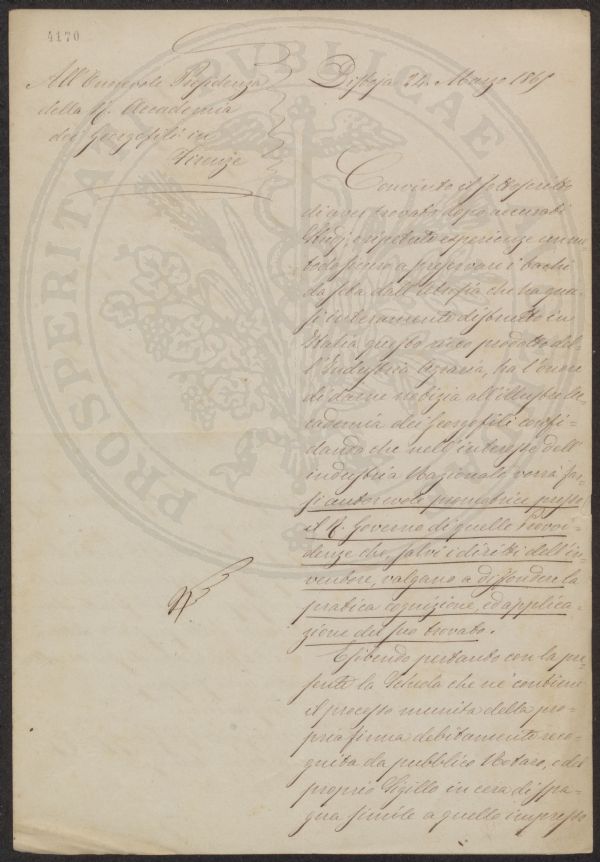 4170
PROSPERITATI PUBLICAE
All'Onorevole Presidenza
della R. Accademia
dei Georgofili in
Firenze
24 Marzo 1865
Convinto il sottoscritto
di aver trovato dopo accurati
studj, e ripetute esperienze un me
todo sicuro a preservare i bachi
da seta dall'Atrofia che ha qua-
si interamente distrutto in
Italia questo ricco prodotto del-
l'Industria Agraria, ha l'onore
di darne notizia all'illustre Ac-
cademia dei Georgofili confi=
dando che nell'interesse dell'
industria Nazionale vorrà far-
si autorevole promotrice presso
il R. Governo di quelle Provvi-
denze che, salvi i diritti dell'in-
ventore, valgano a diffondere la
pratica cognizione, ed applica-
zione del suo trovato.
Esibendo pertanto con la pre
sente la Scheda che ne contiene
il processo munita della pro=
pria firma debitamente reco-
gnita da pubblico Notaro, e del
proprio Sigillo in cera di Spa-
gna simile a quello impresso